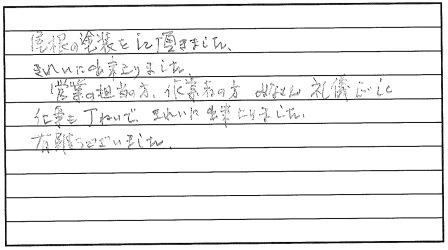 屋根の塗装をして頂きました、
きれいに出来上りました。
営業の担当の方、作業者の方 みなさん 礼儀正しく
仕事も丁ねいで、きれいに出来上りました。
有難うございました。